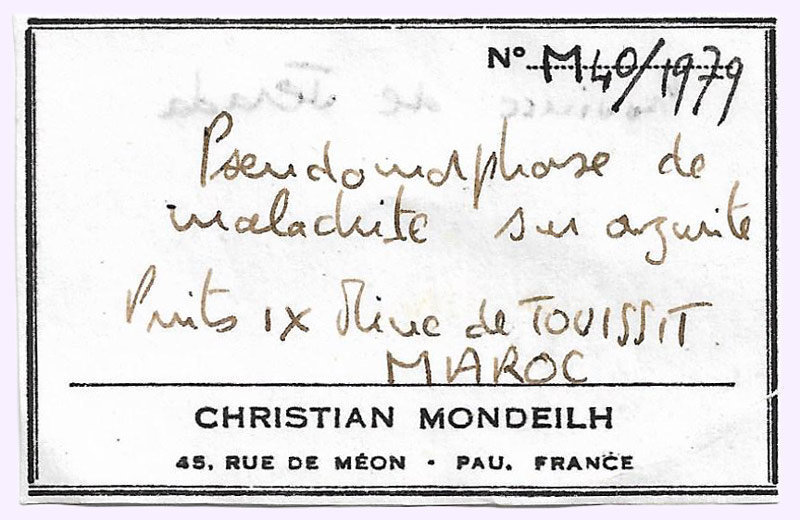 N° M40/1979
Pseudomorphose de
malachite sur azurite
Puits IX Mine de TOUISSIT
MAROC
CHRISTIAN MONDEILH
45, RUE DE MÉON · PAU. FRANCE